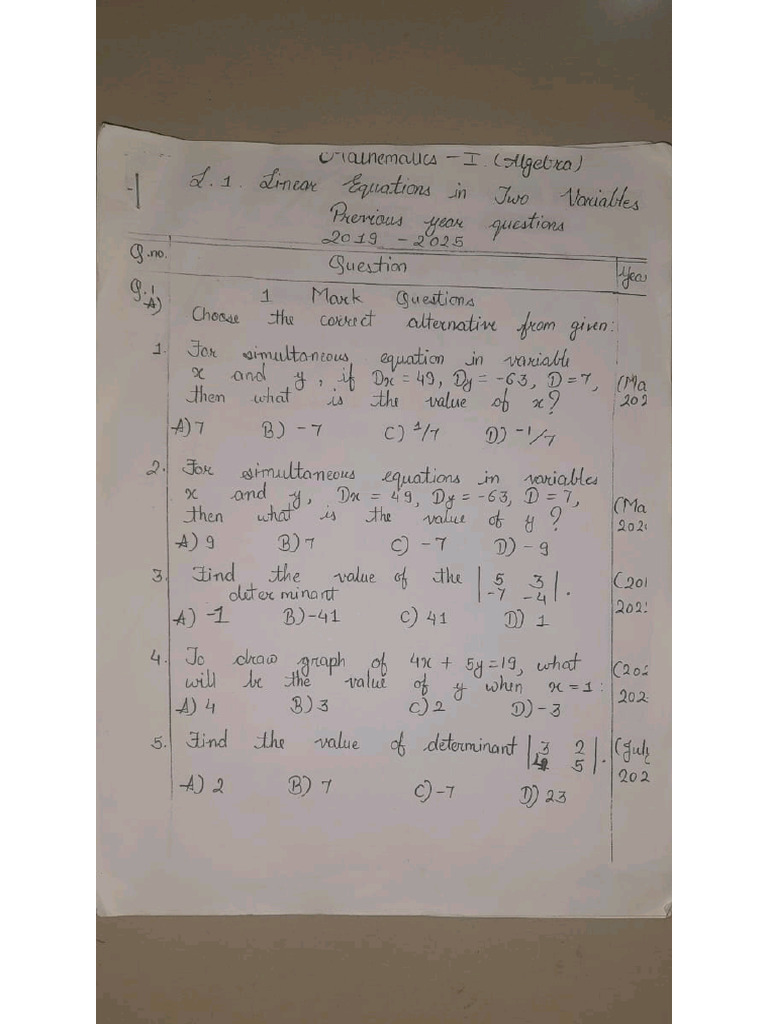 Mathematics - I (Algebra)
L.1. Linear Equations in Two Variables
Previous year questions
2019 - 2025
Q.no. Question Yea
Q.1 1 Mark Questions
A) Choose the correct alternative from given:
1. For simultaneous equation in variable
x and y, if Dx = 49, Dy = -63, D = 7, (Ma
then what is the value of x? 202
A) 7 B) -7 C) 1/7 D) -1/7
2. For simultaneous equations in variables
x and y, Dx = 49, Dy = -63, D = 7, (Ma
then what is the value of y? 202
A) 9 B) 7 C) -7 D) -9
3. Find the value of the | 5 3 | (201
determinant | -7 -4 |. 202
A) -1 B) -41 C) 41 D) 1
4. To draw graph of 4x + 5y = 19, what (202
will be the value of y when x = 1: 202
A) 4 B) 3 C) 2 D) -3
5. Find the value of determinant | 3 2 | (July
| 4 5 |. 202
A) 2 B) 7 C) -7 D) 23